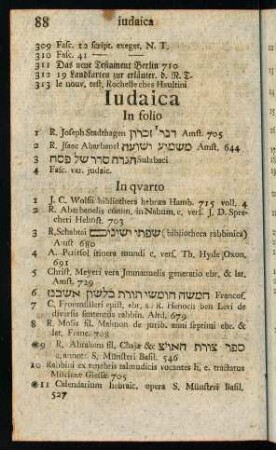 88 iudaica
309 Fasc. 12 script. exeget. N. T.
310 Fasc. 41 — —
311 Das neue Testament Berlin 710
312 19 Landkarten zur erläuter. d. N. T.
313 le nouv. test, Rochelle ches Haultini
Iudaica
In folio
1 R. Joseph Stadthagen דברי זכרון Amst. 705
2 R. Isaac Abarbanel משמיע ישועה Amst. 644
3 הגרה סדר של פסח Sulzbaci
4 Fasc. var. judaic.
In qvarto
1 J. C. Wolfii bibliotheca hebræa Hamb. 715 voll. 4
2 R. Abarbenelis comm. in Nahum, c, vers. J. D. Spre-
cheri Helmst. 703
3 R. Schabtai שפתי ישינים (bibliotheca rabbinica)
Amst 680
4 A. Peritsol itinera mundi c, vers. Th. Hyde Oxon,
691
5 Christ. Meyeri vers Jmmanuelis generatio ebr, & lat.
Amst. 729
6 חמשה חומשי תורת בלשון אשכנז Francof.
7 C, Fromülleri epist, ebr, a. r. H. Henoch ben Levi de
diversis sententiis rabbin. Altd. 679
8 R. Mosis fil. Maimon de jurib. anni septimi ebr. &
lat. Franc. 708
*9 R, Abraham fil, Chajæ &c ספר צורת הארץ
c, annot. S, Münsteri Basil. 546
10 Rabbini ex tenebris talmudicis vocantes h, e. tractatus
Mischnæ Giessæ 705
*11 Calendarium hebraic, opera S, Münstrei Basil.
527